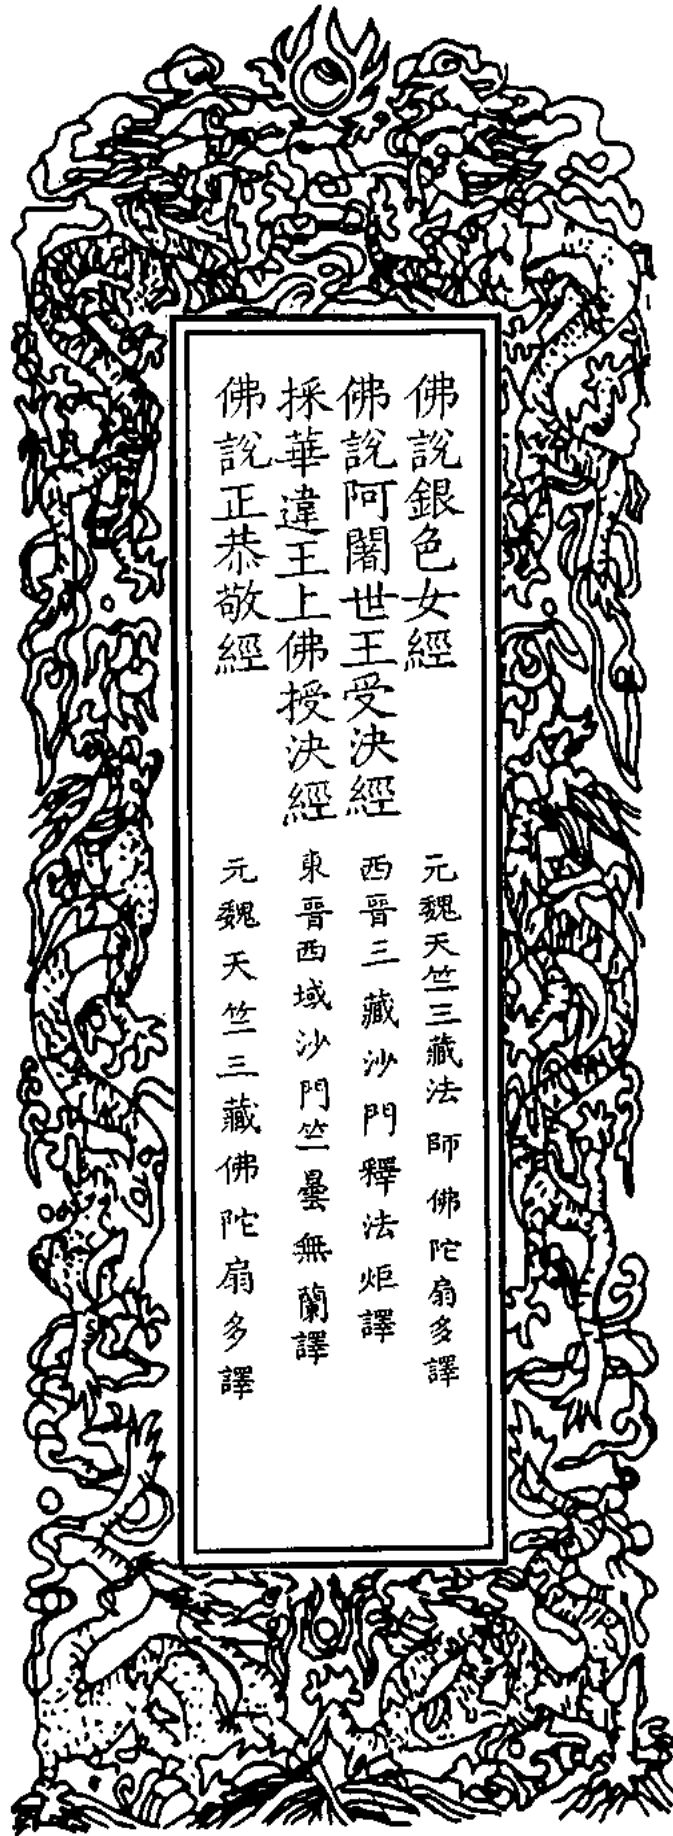 佛說銀色女經 元魏天竺三藏法師佛陀扇多譯
佛說阿闍世王受決經 西晉三藏沙門釋法炬譯
採華違王上佛授決經 東晉西域沙門竺曇無蘭譯
佛說正恭敬經 元魏天竺三藏佛陀扇多譯